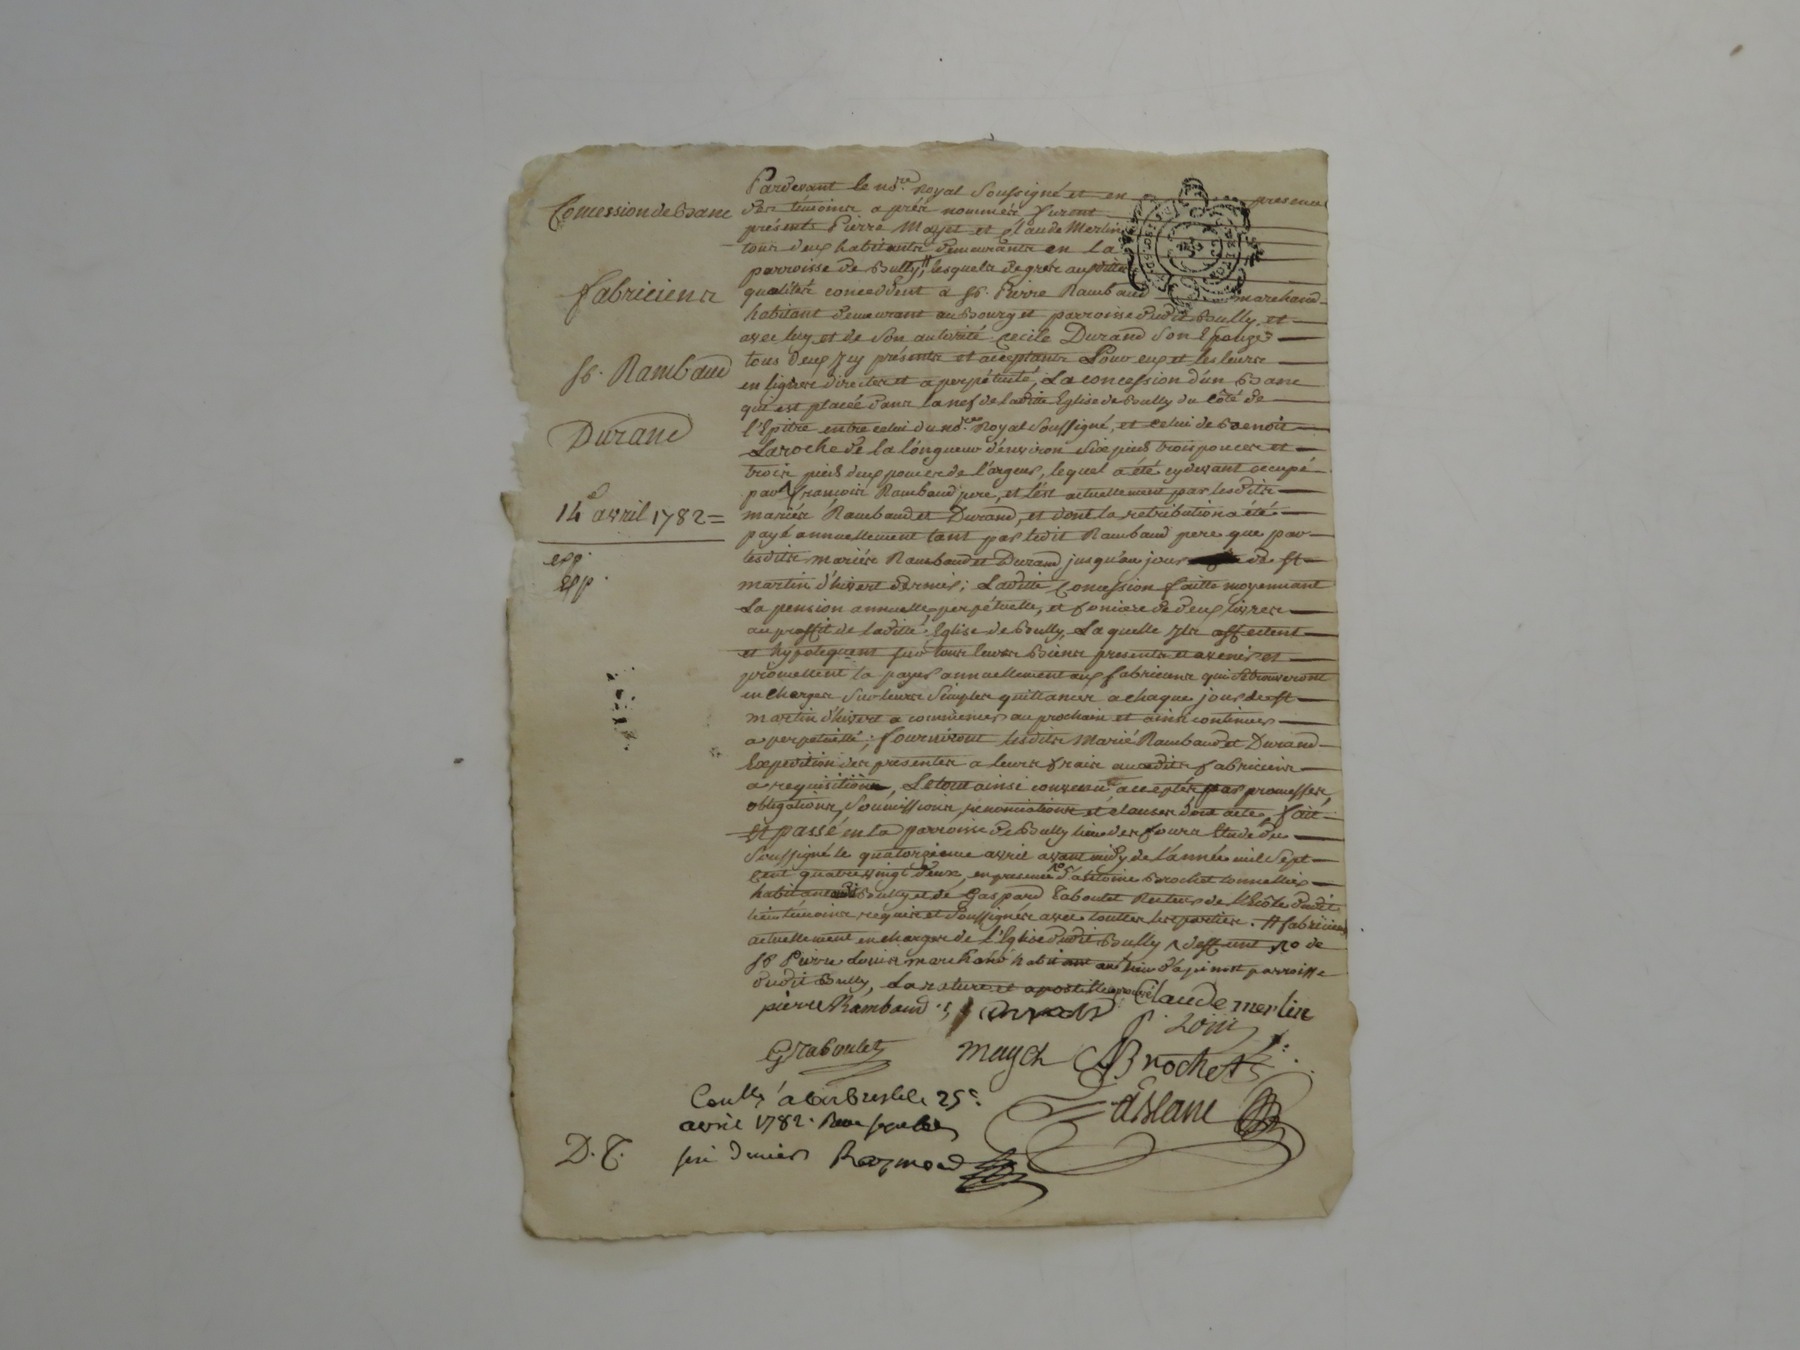 Concession de Banc
fabriciens
Sr. Rambaud
Durand
14e avril 1782 =
exp.
exp.
Pardevant le nore. Royal Soussigné et en presence
des témoins aprés nommés furent
présents Pierre Mayet et Claude Merlin
tous deux habitants demeurants en La
parroisse de Bully, # lesquels de grés auxdittes
qualités concedent à Sr. Pierre Rambaud marchand
habitant demeurant au Bourg et parroisse dudit Bully, et
avec luy et de Son autorité Cecile Durand Son Epouze
tous deux Icy présents et acceptants Pour eux et les leurs
en lignes directes et a perpétuité, La concession d'un Banc
qui est placéé dans la nef de laditte Eglise de Bully du Côté de
l'Epitre entre celui du nore. Royal Soussigné, et celui de Benoit
Laroche de la longueur d'environ Six pieds trois pouces et
trois pieds deux pouces de l'argeur, lequel a été cydevant occupé
par françois Rambaud pere, et l'est actuellement par lesdits
mariés Rambaud et Durand, et dont la retribution a été
payé annuellement tant par ledit Rambaud pere que par
lesdits mariés Rambaud et Durand jusqu'au jour de St
martin d'hivert dernier; Laditte Concession faitte moyennant
La pension annuelle, perpétuelle, et fonciere de deux livres
au proffit de laditte Eglise de Bully, Laquelle Ils affectent
et hypotequent sur tous leurs Biens presents et avenir et
promettent la payer annuellement aux fabriciens qui se trouveront
en Charges Sur leurs Simples quittances a chaque jour de St
martin d'hivert a commencer au prochain et ainsi continuer
a perpétuité; fourniront lesdits Marié Rambaud et Durand
Expédition des presentes a leurs frais auxdits fabriciens
a requisition, Le tout ainsi convenu et accepté par promesses
obligations, Soumissions, renonciations et clauses dont acte, fait
Et passé en la parroisse de Bully lieu des fours Etude du
Soussigné le quatorzieme avril avant midy de l'année mil Sept
Cent quatre vingt deux, en presence d'antoine Brochet tonnellier
habitant audit Bully et de Gaspard Taboulet Recteur de l'Ecole dudit
lieu témoins réquis et Soussignés avec touttes les parties. # fabriciens
actuellement en charges de l'Eglise dudit Bully
Sr Pierre Louis marchand habitant au lieu parroisse
dudit Bully,
pierre Rambaud
Durand
Claude merlin
P. Loüis
GTaboulet
mayet
ABrochet
deBlanc
Conllé à Larbresle le 25e
avril 1782. Reçu
six deniers Raymond
D.T.